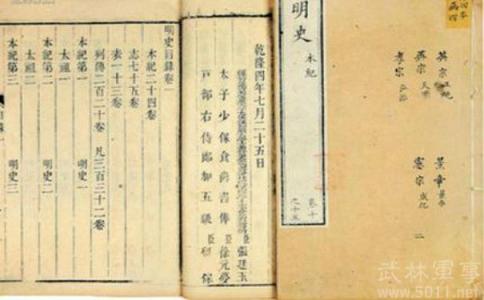 明史
本紀
卷十
之十五
英宗 正統
英宗 天順
孝宗 弘治
景帝 景泰
憲宗 成化
二
乾隆四年七月二十五日
太子少保食尚書俸臣徐元夢
戶部右侍郎加五級臣
保
張廷玉
明史目錄卷一
本紀二十四卷
志七十五卷
表一十三卷
列傳二百二十卷 凡三百三十二卷
本紀第一 明史一
太祖一
本紀第二 明史二
太祖二
本紀第三 明史三
武林軍事
www.5011.net